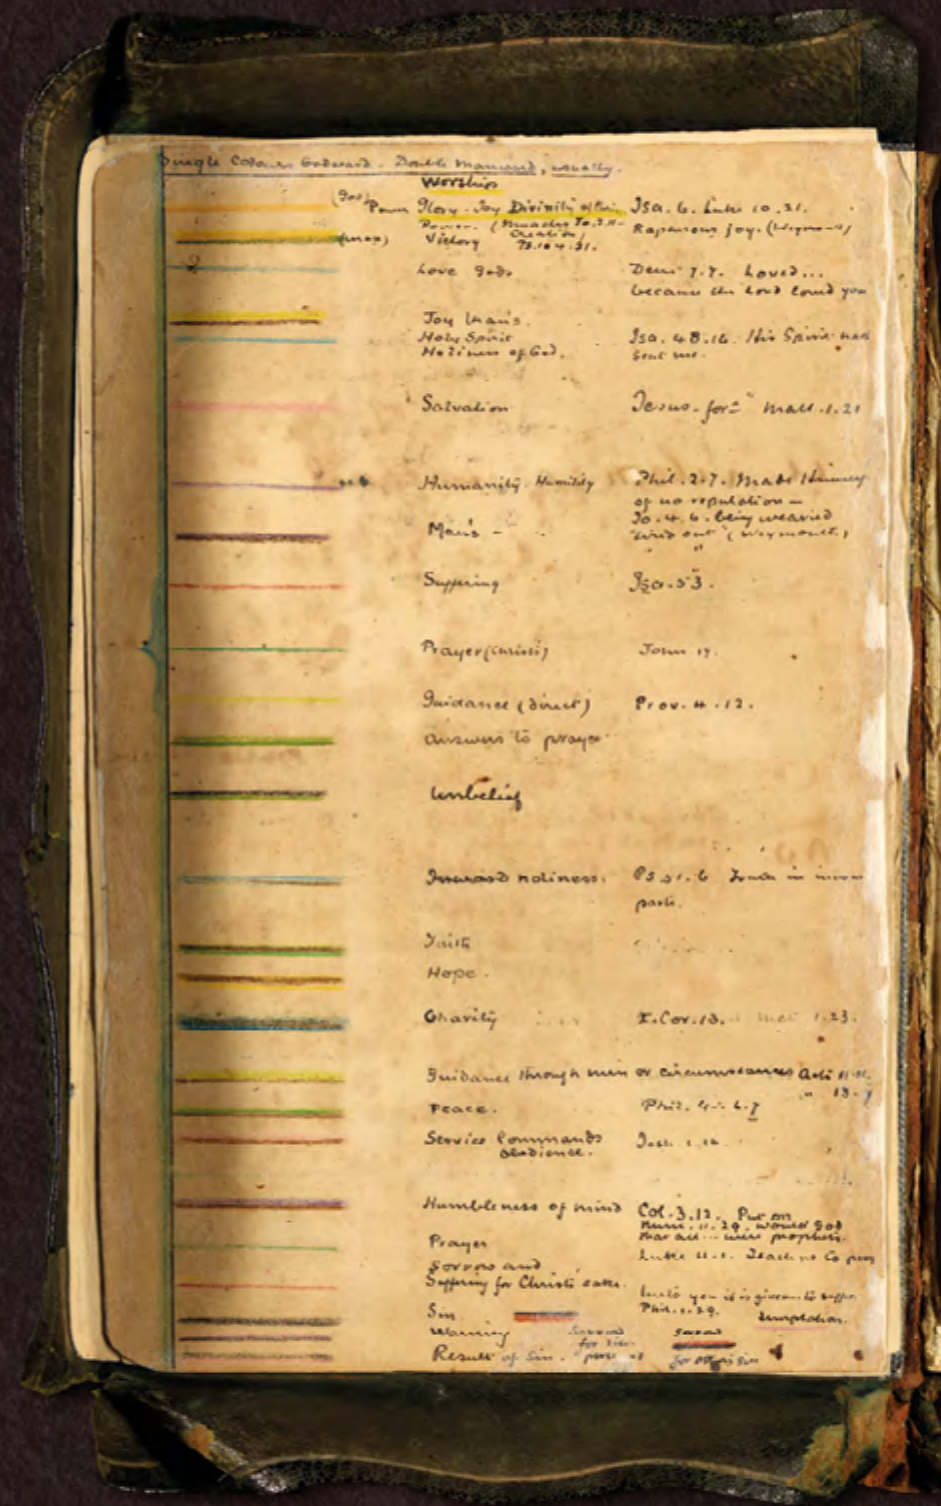 Single Colours Godward. Double Manward, usually.
Worship
(God) Power Glory. Joy Divinity of Isa. 6. Luke 10.21.
Power. (Miracles Jo. 2.11 Rapturous joy. (Weymouth)
Creation)
(man) Victory Ps. 104.31.
Love God's Deut 7.7. Loved...
because the Lord loved you
Joy Man's.
Holy Spirit Isa. 48.16. His Spirit hath
Holiness of God. sent me.
Salvation Jesus. for Matt. 1.21
Humanity. Humility Phil. 2.7. Made Himself
of no reputation -
Man's - Jo. 4.6. being wearied
"tired out" (Weymouth)
Suffering Isa. 53.
Prayer (Christ's) John 17.
Guidance (direct) Prov. 4.12.
Answers to prayer
Unbelief
Inward holiness. Ps 51.6 Truth in inward
parts.
Faith
Hope.
Charity I. Cor. 13. 1.23.
Guidance through men or circumstances Acts
Peace. Phil. 4. 6.7
Service Commands
Obedience.
Humbleness of mind Col. 3.12. Put on
Num. 11.29. would God
that all... were prophets.
Prayer Luke 11.1. Teach us to pray
Sorrow and
Suffering for Christ's sake. unto you it is given to suffer
Phil. 1.29.
Sin Temptation.
Warning Sorrow
for sin.
Result of Sin. for others sin